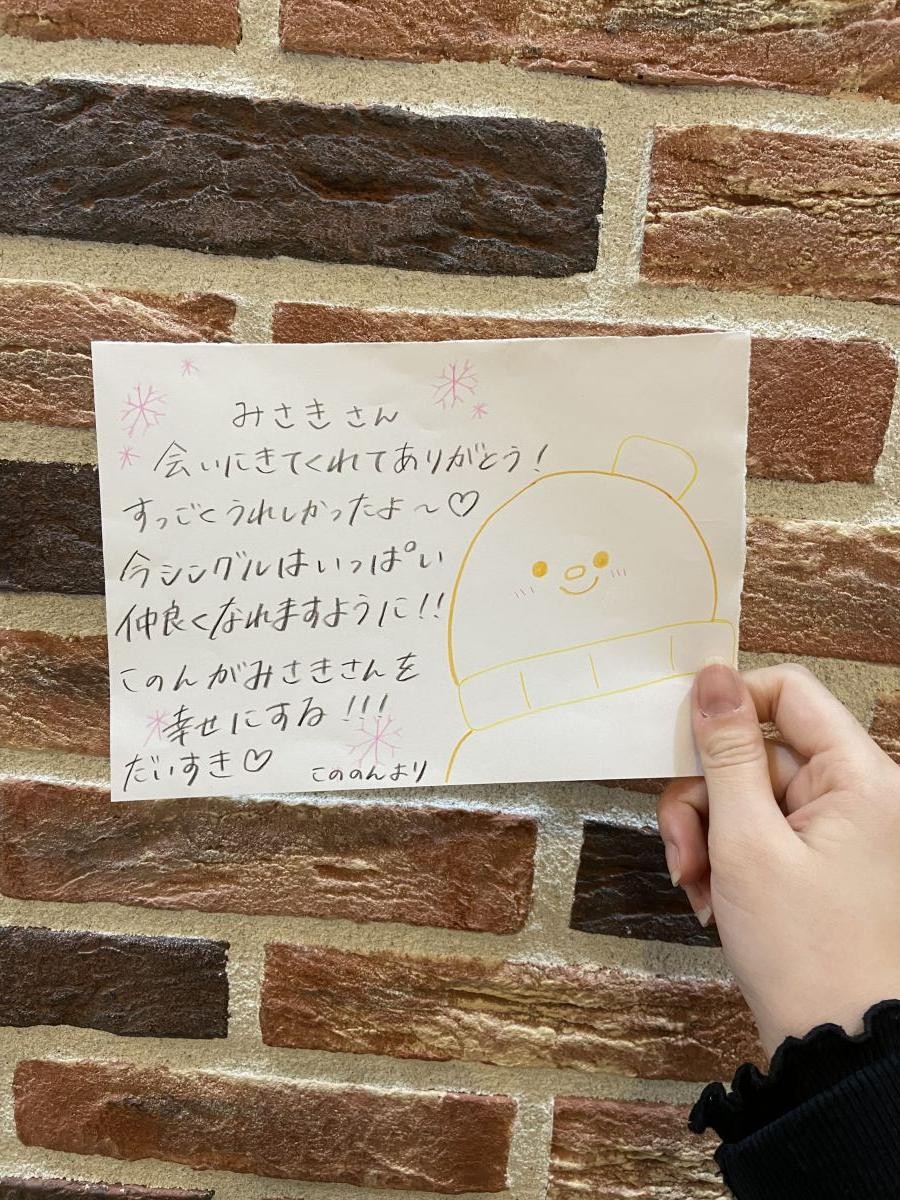 みさきさん
会いにきてくれてありがとう!
すっごくうれしかったよ~♡
今シングルはいっぱい
仲良くなれますように!!
このんがみさきさんを
幸せにする!!!
だいすき♡
こののんより